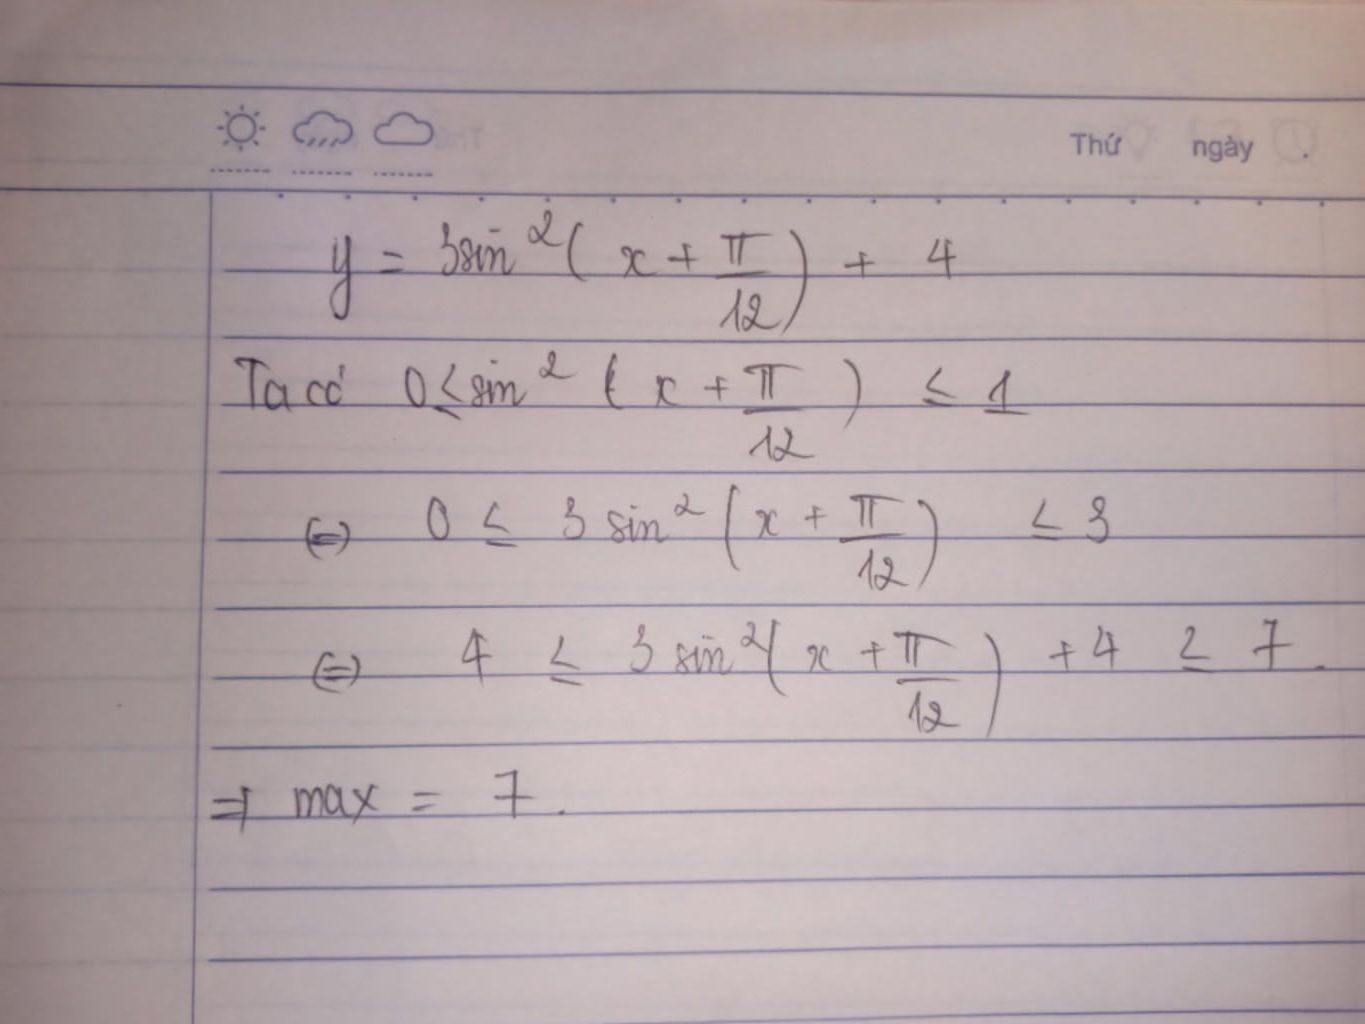 Thứ ngày .
y = 3sin²(x + π/12) + 4
Ta có 0 ≤ sin² (x + π/12) ≤ 1
(=) 0 ≤ 3 sin² (x + π/12) ≤ 3
(=) 4 ≤ 3 sin² (x + π/12) + 4 ≤ 7.
=> max = 7.